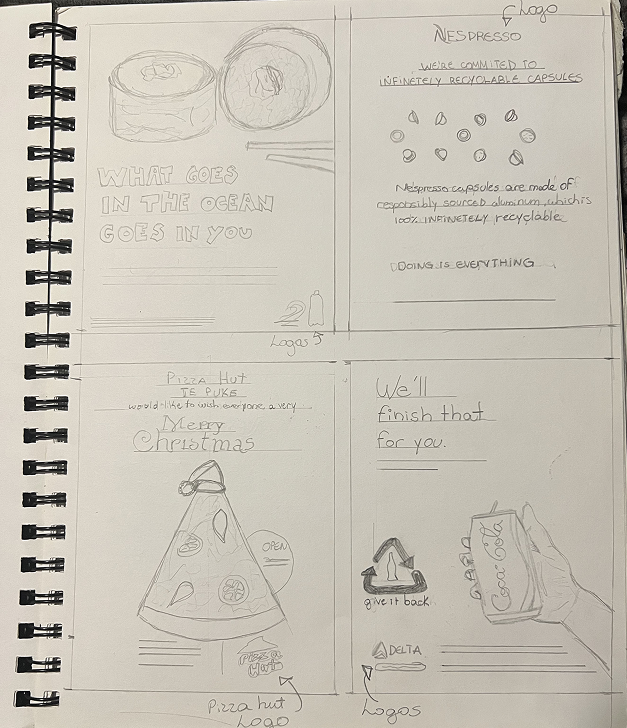 Logo
NESPRESSO
WE'RE COMMITED TO
INFINETELY RECYCLABLE CAPSULES
Nespresso capsules are made of
responsibly sourced aluminum, which is
100% INFINETELY recyclable
DOING IS EVERYTHING
WHAT GOES
IN THE OCEAN
GOES IN YOU
Logos
PIZZA HUT
TE PUKE
would like to wish everyone a very
Merry
Christmas
OPEN
Pizza
Hut
Pizza hut
Logo
We'll
finish that
for you.
Coca Cola
give it back
DELTA
Logos